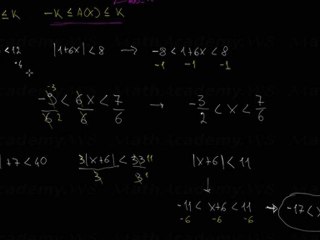 ≤ K   -K ≤ A(x) ≤ K
< 12   |1+6x| < 8   →   -8 < 1+6x < 8
-1   -1   -1
-9/6 < 6x/6 < 7/6   →   -3/2 < x < 7/6
| +7 < 40   3|x+6|/3 < 33/3   |x+6| < 11
-11 < x+6 < 11   →   -17 < x
-6   -6   -6